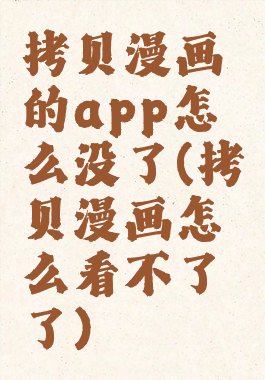 拷贝漫画
的app怎
么没了(拷
贝漫画怎
么看不了
了)